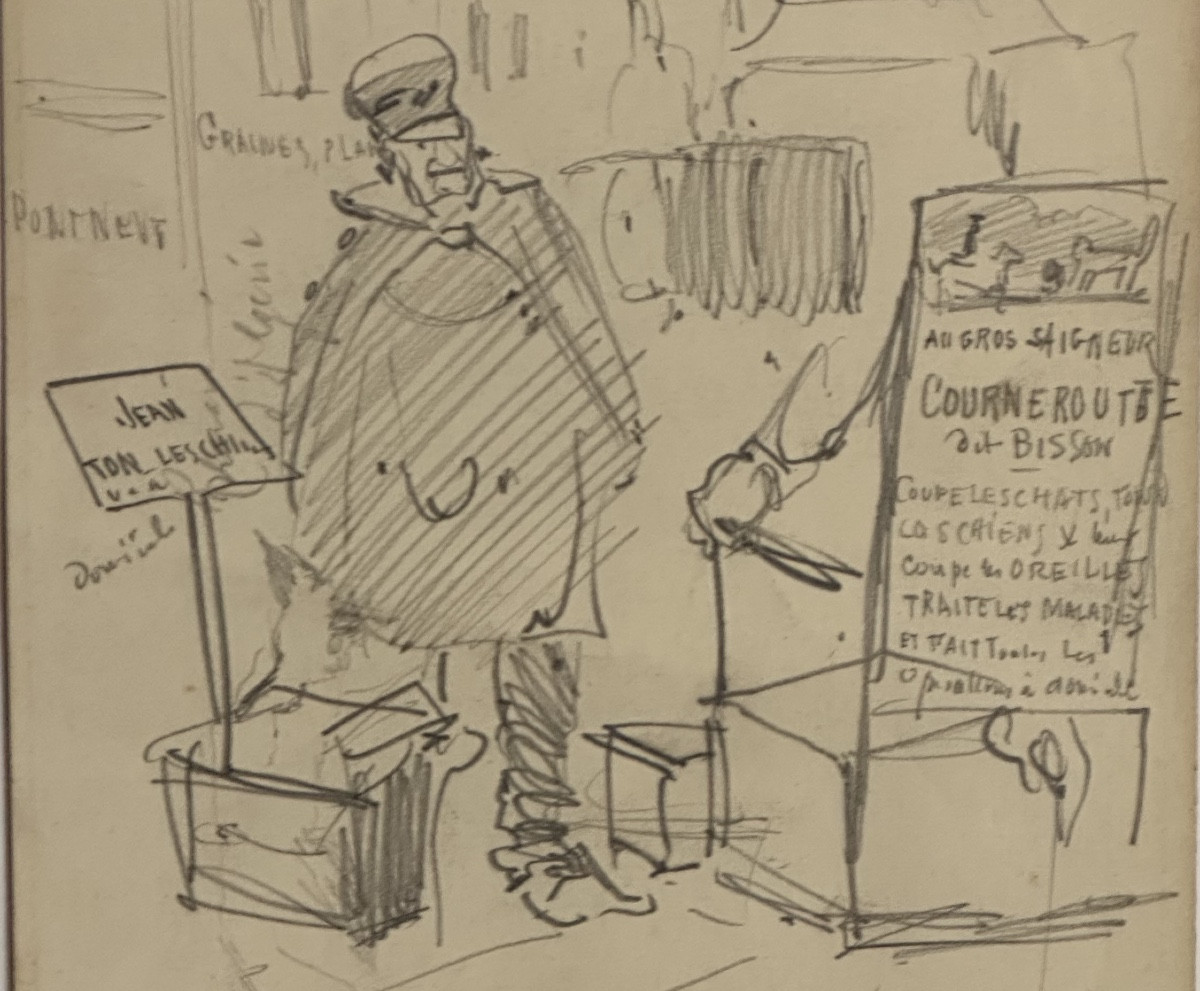 GRAINES, PLAN
PONTNEUF
JEAN
TON LES CHI
v-a
Domicile
AU GROS SAIGNEUR
COURNEROUTTE
dit BISSON
COUPE LES CHATS, TOND
LES CHIENS & leur
Coupe les OREILLES
TRAITE LES MALADES
ET FAIT Toutes Les
Opérations à domicile